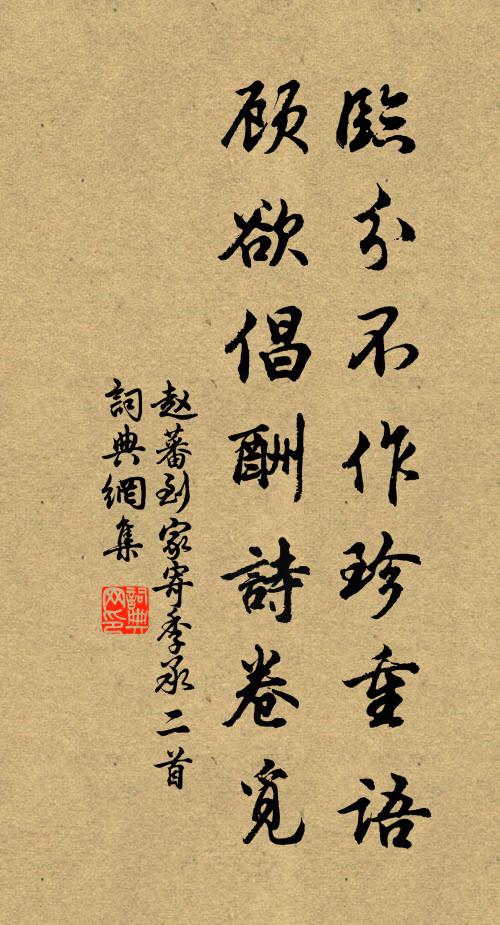 臨分不作珍重语
顾欲倡酬詩卷觅
赵蕃到家寄季承二首
詞典網集
詞典网印